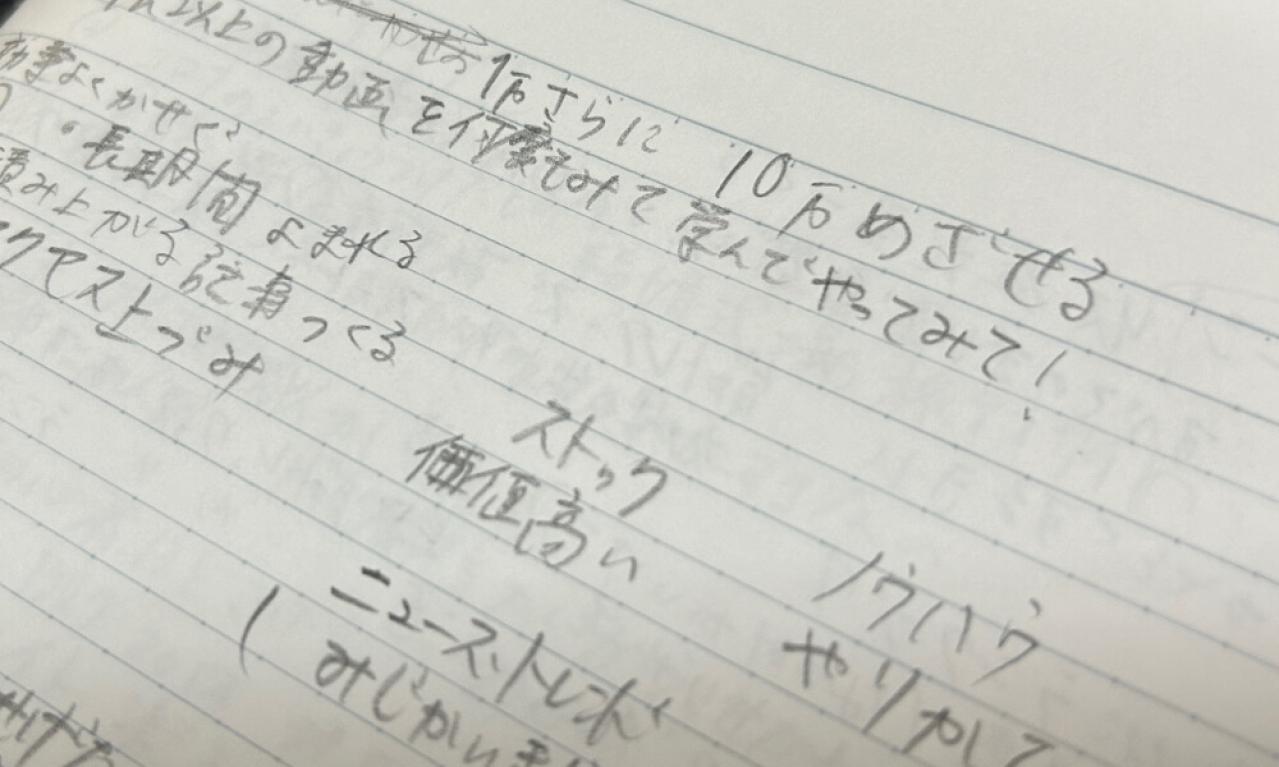 1万さらに 10万めざせる
以上の動画を何度もみて学んでやってみて!
効率よくかせぐ
・長期間よまれる
積み上がる記事つくる
クでスト上づみ
ストック
価値高い
ノウハウ
やりかた
ニューストレンド
みじかい